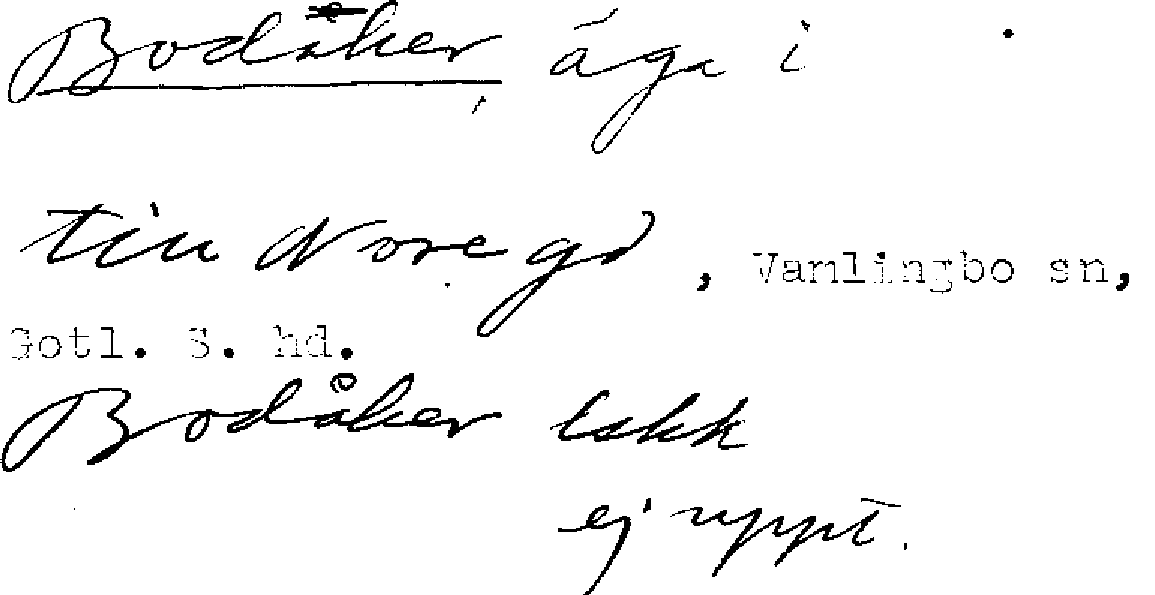 Bodåker äga i
tiu Noregd, Vamlingbo sn,
Gotl. S. hd.
Bodåker lskk
ej uppt.